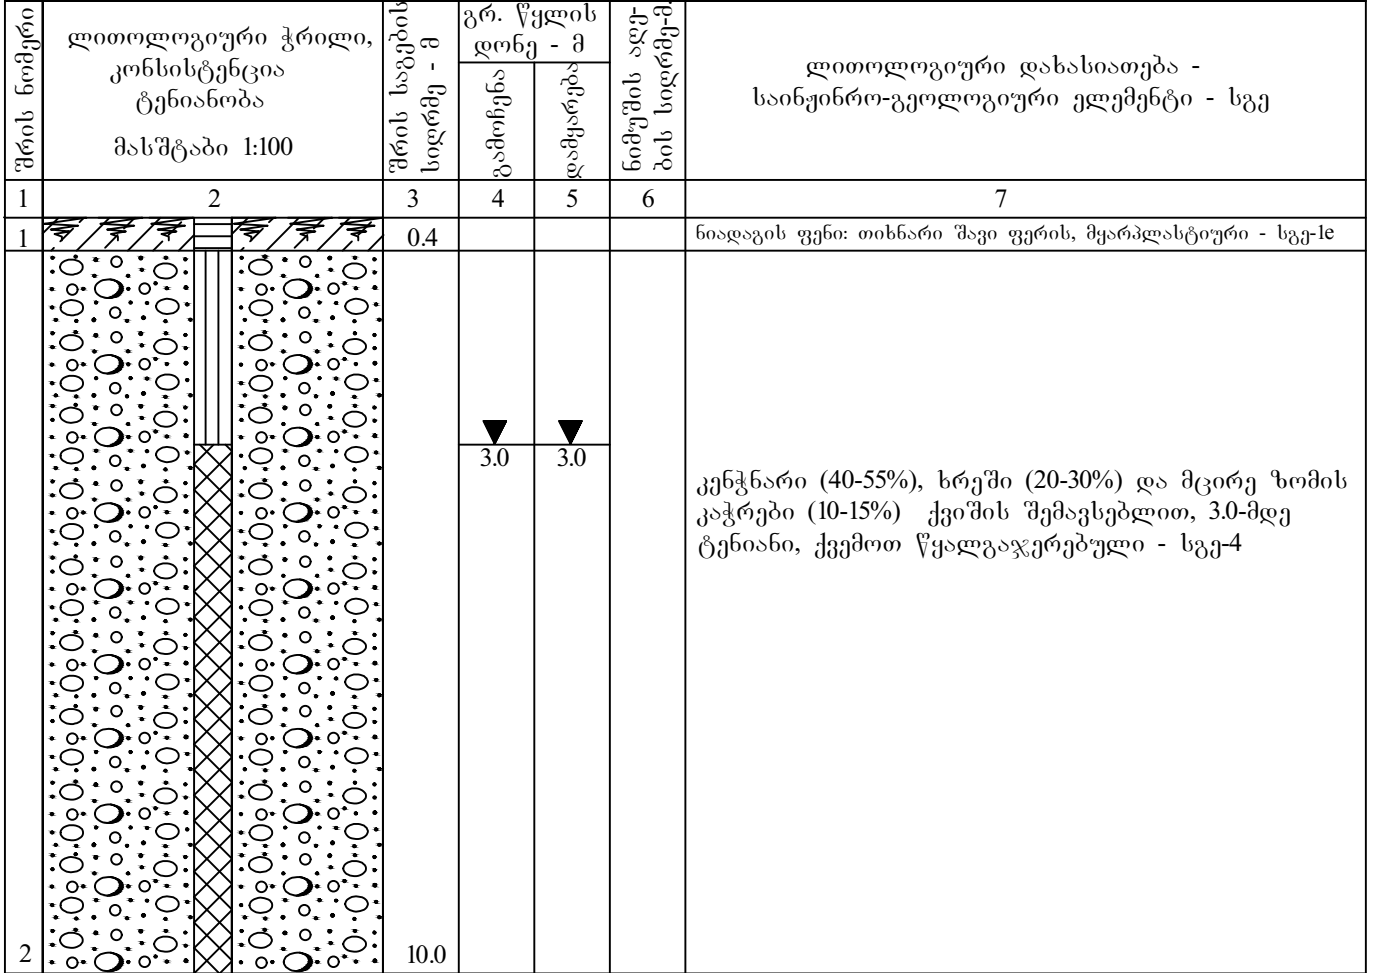 შრის ნომერი
ლითოლოგიური ჭრილი,
კონსისტენცია
ტენიანობა
მასშტაბი 1:100
შრის საგების
სიღრმე - მ
გრ. წყლის
დონე - მ
გამოჩენა
დამყარება
ნიმუშის აღე-
ბის სიღრმე-მ.
ლითოლოგიური დახასიათება -
საინჟინრო-გეოლოგიური ელემენტი - სგე
1 2 3 4 5 6 7
1 0.4 ნიადაგის ფენი: თიხნარი შავი ფერის, მყარპლასტიური - სგე-1e
3.0 3.0
კენჭნარი (40-55%), ხრეში (20-30%) და მცირე ზომის
კაჭრები (10-15%) ქვიშის შემავსებლით, 3.0-მდე
ტენიანი, ქვემოთ წყალგაჯერებული - სგე-4
2 10.0